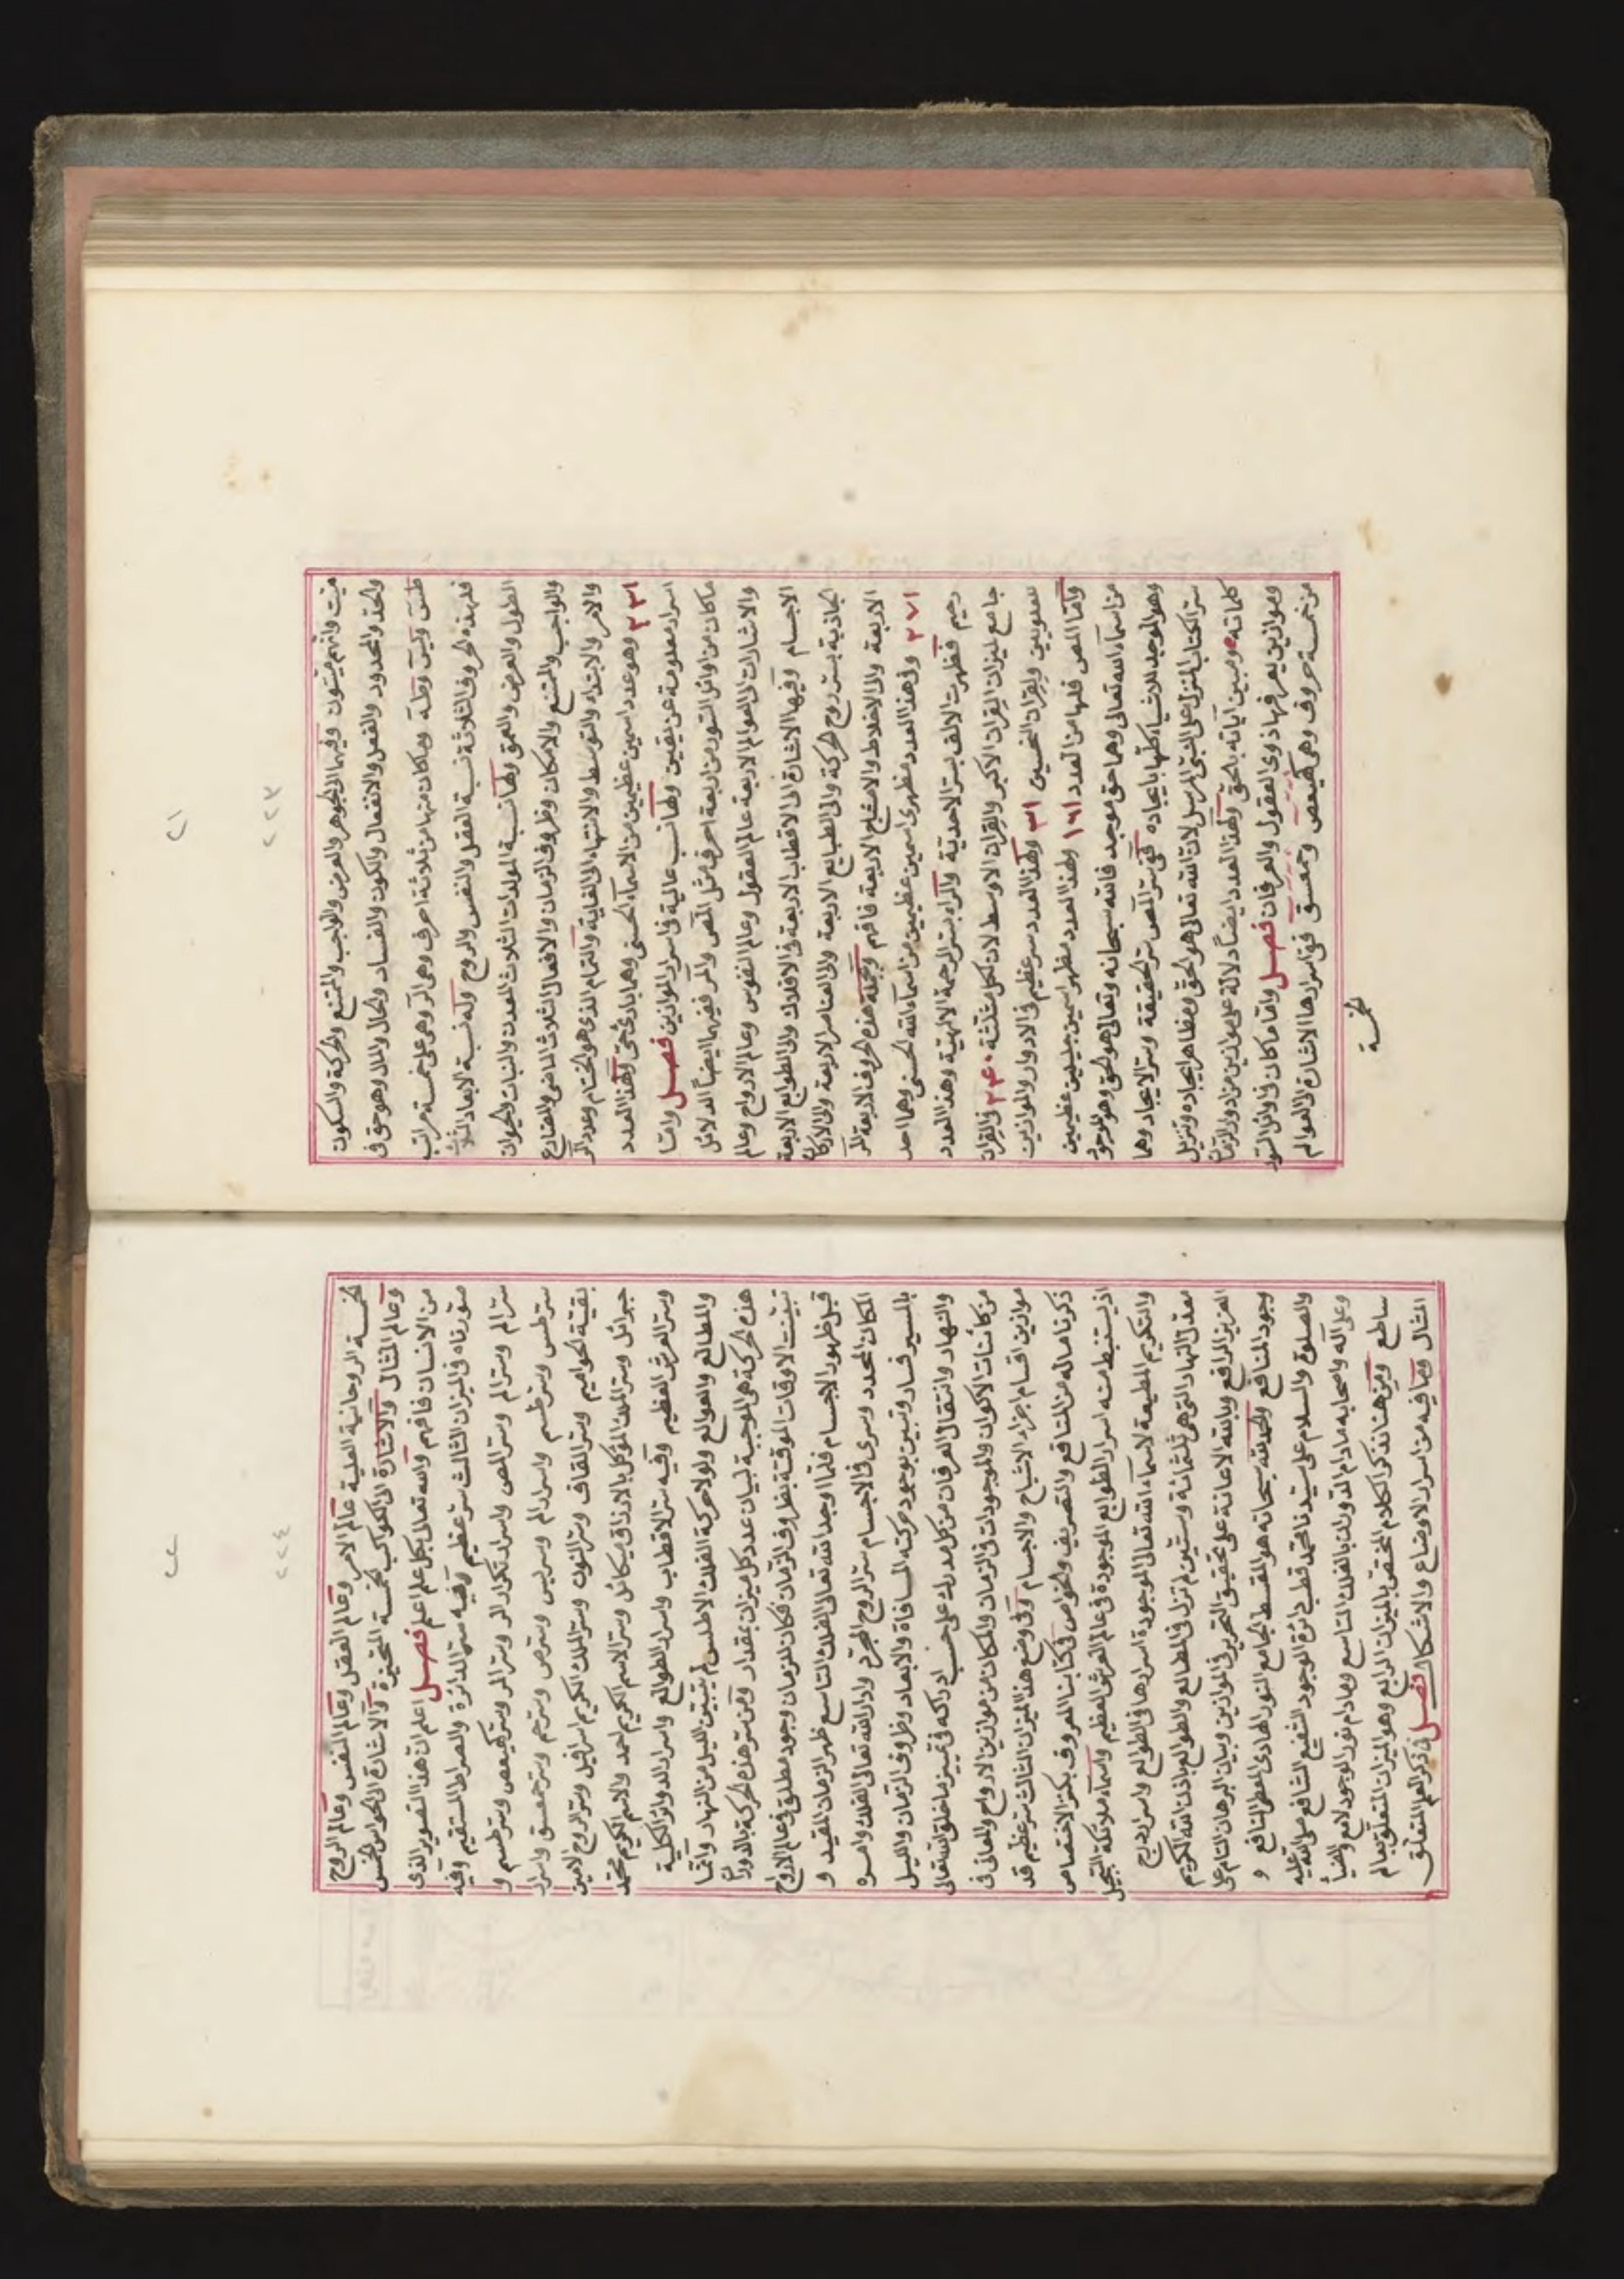 ٢١
٢٢٣
ميت وانهم ميتون وفيهما الجوهر والعرض والواجب والممتنع والحركة والسكون
والحد والمحدود والفعل والانفعال والكون والفساد والحال والمال وهو حق في
طس ويس وطه وما كان منها من ثلاثة احرف وهي الر وهي على خمسة مراتب
فلهذه الحروف الثلاثة نسبة العقل والنفس والروح وله نسبة الابعاد الثلاث
الطول والعرض والعمق ولها نسبة المولدات الثلاث المعدن والنبات والحيوان
والواجب والممتنع والامكان وظروف الزمان والافعال الثلاث الماضي والمضارع
والامر والابتداء والتوسط والانتهاء الى الغاية والتمام الذي هو الختام وعدد الر
٢٣١ وهو عدد اسمين عظيمين من الاسماء الحسنى وهما وهذا العدد
اسرار معلومة عن يقين ولها نسب عالية في اسرار الموازين فصل واما
ما كان من اوائل السور من اربعة احرف مثل المص والمر ففيهما ايضا الدلائل
والاشارات الى العوالم الاربعة عالم العقول وعالم النفوس وعالم الارواح وعالم
الاجسام وفيها الاشارة الى الاقطاب الاربعة في الافلاك والى الطوالع الاربعة
الجاذبة بسر روح الحركة والى الطبايع الاربعة والى العناصر الاربعة والى الاركان
الاربعة والى الاخلاط والامشاج الاربعة فافهم وجملة هذه الحروف الاربعة المر
٢٧١ وفي هذا العدد مظهري اسمين عظيمين من اسماء الله الحسنى وهما احد
رحيم فظهرت الالف بسر الاحدية والراء بسر الرحمة الالهية وهذا العدد
جامع لميزان القران الاكبر والقران الاوسط لان لكل مثلثة ٢٤٠ والقران
للعلويين ولقران النحسين ٣١ ولهذا العدد سر عظيم في الادوار والموازين
واما المص فلها من العدد ١٦١ ولهذا العدد مظهر اسمين جليلين عظيمين
من اسماء الله تعالى وهما حق موجد فالله سبحانه وتعالى هو الحق وهو الموجود
وهو الموجد للاشياء كلها بايجاده ففي سر المص سر الحقيقة وسر الايجاد وهما
سر الكتاب المنزل على النبي المرسل لان الله تعالى هو الحق ومظاهر ايجاده وتنزيل
كلماته ومبين آياته بالحق ولهذا العدد ايضا دلالة على موازين من ادوار الزمان
وموازين يعرفها ذوي العقول والعرفان فصل واما ما كان في اوائل السور
من خمسة حروف وهي كهيعص وحمعسق ففي اسرارها الاشارة الى العوالم
الخمسة
٢٢
٢٢٤
الخمسة الروحانية العلية عالم الامر وعالم العقل وعالم النفس وعالم الروح
وعالم المثال والاشارة الى الكواكب الخمسة المتحيزة والاشارة الى الحواس الخمس
من الانسان فافهم والله تعالى بكل علم اعلم فصل اعلم ان هذا التصوير الذي
صورناه في الميزان الثالث سر عظيم وفيه سر الدائرة والصراط المستقيم وفيه
سر الم وسر الم وسر المص واسرار تكرار الر وسر المر وسر كهيعص وسر طسم و
سر طس وسر طسم واسرار الم وسر يس وسر ص وسر حم وسر حمعسق واسرار
بقية الحواميم وسر القاف وسر النون وسر الملك الكريم اسرافيل وسر الروح الامين
جبرائل وسر الملك الموكل بالارزاق ميكائل وسر الاسم الكريم احمد والاسم الكريم محمد
وسر العرش العظيم وفيه سر الاقطاب واسرار الطوالع واسرار الدوائر الكلية
والمطالع والعوالع ولولا حركة الفلك الاطلس لم يتبين الليل من النهار وانما
هذه الحركة هي الموجبة لبيان عدد كل ميزان بمقدار ومن سر هذه الحركة بالدوران
تبينت الاوقات الموقتة بظروف الزمان فكان للزمان وجود مطلق في عالم الارواح
قبل ظهور الاجسام فلما اوجد الله تعالى الفلك التاسع ظهر الزمان المقيد و
المكان المحدد وسرى في الاجسام سر الروح المجرد وادار الله تعالى الفلك وامره
بالمسير فسار وتبين بوجود حركته المسافاة والابعاد وظروف الزمان والليل
والنهار وانتقال العرفان من كل مدرك على حسب ادراكه في تمييز ما خلق الله تعالى
من كائنات الاكوان والموجودات في الزمان والمكان من موازين الارواح والمعاني في
موازين اقسام اجزاء الاشباح والاجسام وفي وضع هذا الميزان الثالث سر عظيم قد
ذكرنا ماله من المنافع والتصريف والخواص في كتابنا المعروف بكنز الاختصاص
اذ يستنبط منه اسرار الطوالع الموجودة في عالم العرش العظيم واسماء ملائكة التبجيل
والتكريم المطيعة لاسماء الله تعالى الموجودة اسرارها في الطوالع واسرار درج
معدل النهار التي هي ثلثمائة وستين لم تزل في المطالع والطوالع باذن الله الكريم
العزيز الرافع وبالله الاعانة على تحقيق التحرير في الموازين وبيان البرهان التام على
وجود المنافع والحمد لله سبحانه هو المقسط الجامع النور الهادي المعطي النافع و
والصلوة والسلام على سيدنا محمد قطب دائرة الوجود الشفيع الشافع صلى الله عليه
وعلى آله واصحابه مادام الدوران بالفلك التاسع ومادام نور الوجود لامع والضياء
ساطع ومن هنا نذكر الكلام المختص بالميزان الرابع وهو الميزان المتعلق بعالم
المثال وما فيه من اسرار الاوضاع والاشكال فصل في ذكر العلم المتعلق